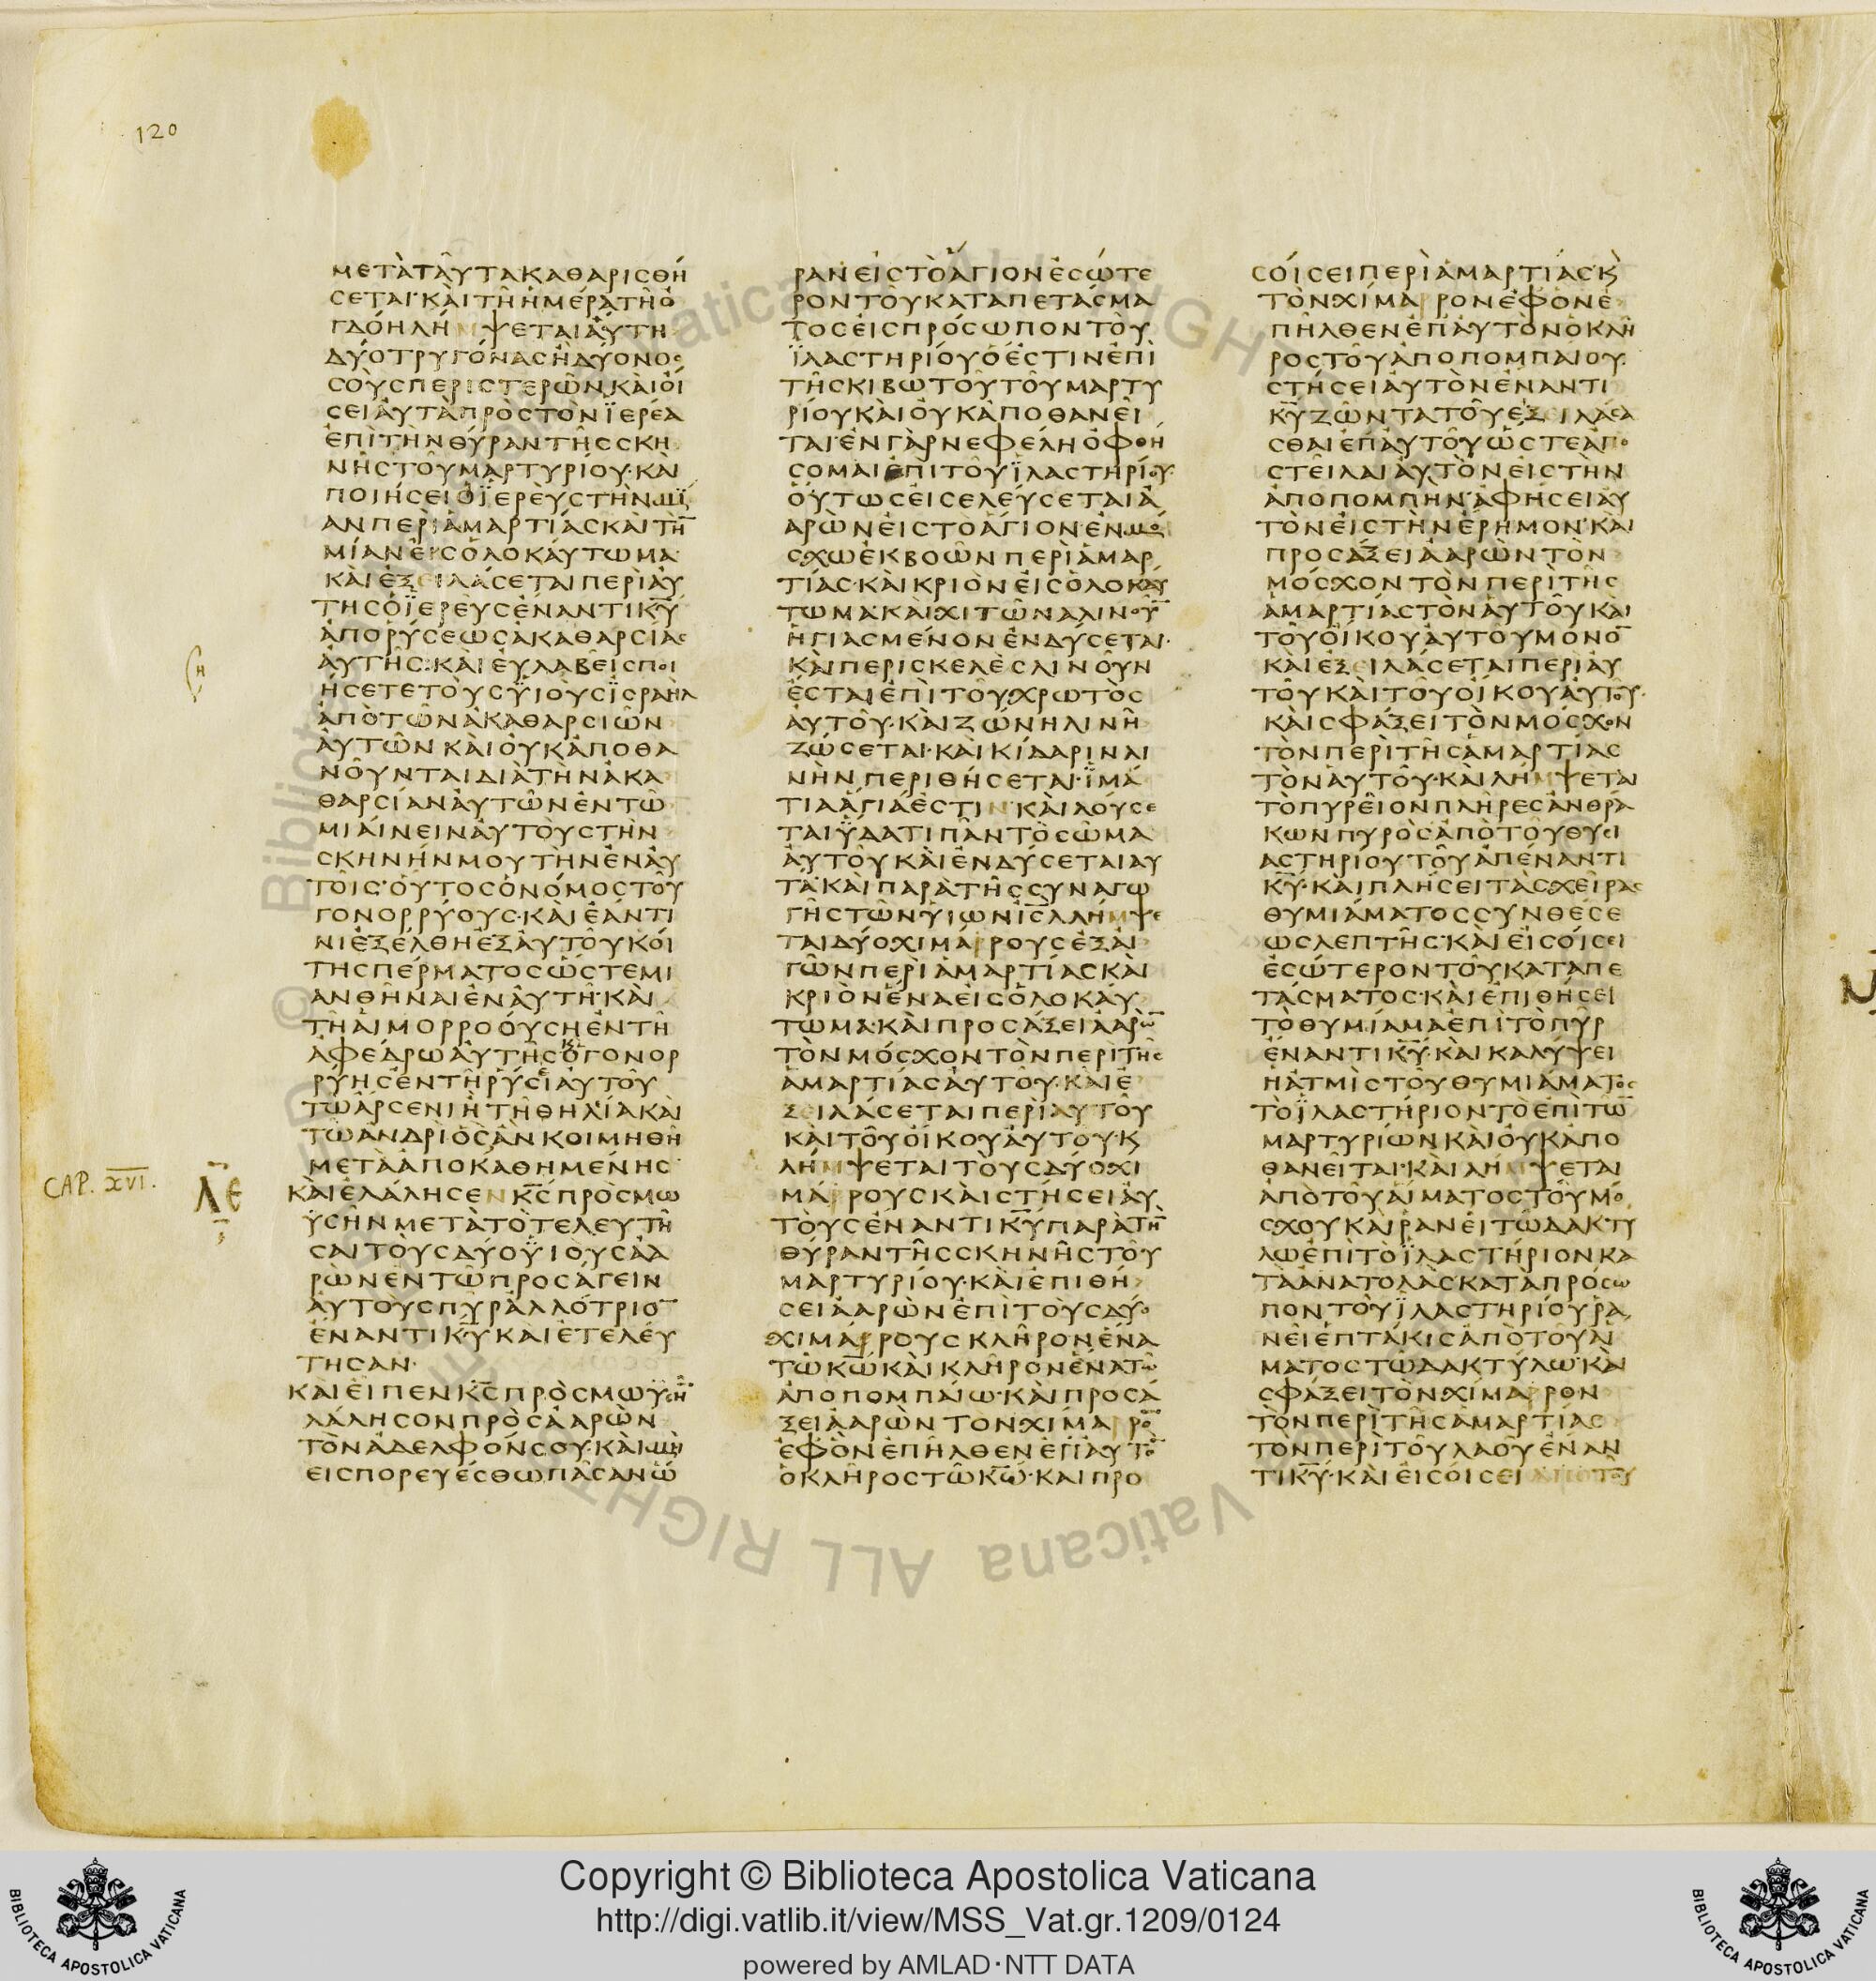 120
ΜΕΤᾺΤΑῦΤΑΚΑΘΑΡΙΣΘΉ
ΣΕΤΑΙ·ΚΑῚΤΗ͂ΗΜΈΡΑΤΗ͂Ὀ
ΓΔΌΗΛΗΜΨΕΤΑΙἁΥΤΗ
ΔΎΟΤΡΥΓΌΝΑΣἢΔΎΟΝΟΣ
ΣΟῪΣΠΕΡΙΣΤΕΡΩ͂Ν·ΚΑῚΟἴ
ΣΕΙΑΥΤᾺΠΡῸΣΤῸΝΪΕΡΈΑ
ἘΠῚΤῊΝΘΎΡΑΝΤΗ͂ΣΣΚΗ
ΝΗ͂ΣΤΟΥ͂ΜΑΡΤΥΡΊΟΥ·ΚΑῚ
ΠΟΙΉΣΕΙὉΪΕΡΕῪΣΤῊΝΜΪ
ΑΝΠΕΡῚἉΜΑΡΤΊΑΣΚΑῚΤΗ̄
ΜΊΑΝΕἸΣὉΛΟΚΑΎΤΩΜΑ·
ΚΑῚἘΞΕΙΛΆΣΕΤΑΙΠΕΡῚΑΥ
ΤΗΣὉΪΕΡΕῪΣἘΝΑΝΤΙΚ̄Ῡ
ἈΠΟΡΎΣΕΩΣἈΚΑΘΑΡΣΊΑΣ
ΑΥΤΗ͂Σ·ΚΑῚΕΥΛΑΒΕΙ͂ΣΠΟΙ
ΉΣΕΤΕΤΟῪΣΫΙΟῪΣΪΣΡΑΗΛ
ἈΠῸΤΩ͂ΝἈΚΑΘΑΡΣΙΩ͂Ν
ΑΥΤΩ͂ΝΚΑῚΟΥΚἈΠΟΘΑ
ΝΟΥ͂ΝΤΑΙΔΙᾺΤῊΝἈΚΑ
ΘΑΡΣΊΑΝΑΥΤΩ͂ΝἘΝΤΩ͂
ΜΙΑΊΝΕΙΝΑΥΤΟῪΣΤῊΝ
ΣΚΗΝΉΝΜΟΥΤῊΝἘΝΑΥ
ΤΟΙ͂Σ·ΟὟΤΟΣὉΝΌΜΟΣΤΟΥ͂
ΓΟΝΟΡΡΎΟΥΣ·ΚΑῚἘΆΝΤΙ
ΝΙἘΞΈΛΘΗἘΞΑΥΤΟΥ͂ΚΟΊ
ΤΗΣΠΈΡΜΑΤΟΣὭΣΤΕΜΙ
ΑΝΘΗ͂ΝΑΙἘΝΑΥΤΗ͂·ΚΑῚ
ΤΗ͂ΑἹΜΟΡΡΟΟΎΣΗἘΝΤΗ͂
ἈΦΈΔΡΩΑΥΤΗ͂ΣὉΓΟΝΟΡ
ΡΎΗΣἘΝΤΗ͂ΡΎΣΙΑΥΤΟΥ͂
ΤΩ͂ἌΡΣΕΝΙἪΤΗ͂ΘΗΛΊΑΚΑῚ
ΤΩ͂ΑΝΔΡῚὉΣἊΝΚΟΙΜΗΘΗ͂
ΜΕΤᾺἈΠΟΚΑΘΗΜΈΝΗΣ·
CAP. XVI.
Λ̄Ε
ΚΑῚἘΛΆΛΗΣΕΝΚ̄Σ̄ΠΡῸΣΜΩ
ΫΣΗ͂ΝΜΕΤᾺΤῸΤΕΛΕΥΤΗ͂
ΣΑΙΤΟῪΣΔΎΟΫΙΟῪΣἈΑ
ΡῺΝἘΝΤΩ͂ΠΡΟΣΆΓΕΙΝ
ΑΥΤΟῪΣΠΥ͂ΡἈΛΛΌΤΡΙΟ̄
ἜΝΑΝΤΙΚ̄ῩΚΑῚἘΤΕΛΕΎ
ΤΗΣΑΝ·
ΚΑῚΕἾΠΕΝΚ̄Σ̄ΠΡῸΣΜΩΫΣΗ̄
ΛΆΛΗΣΟΝΠΡῸΣἈΑΡῺΝ
ΤῸΝἈΔΕΛΦΌΝΣΟΥ·ΚΑῚΜῊ
ΕΙΣΠΟΡΕΥΈΣΘΩΠΑ͂ΣΑΝὭ
ΡΑΝΕἸΣΤῸἍΓΙΟΝἘΣΏΤΕ
ΡΟΝΤΟΥ͂ΚΑΤΑΠΕΤΆΣΜΑ
ΤΟΣΕἸΣΠΡΌΣΩΠΟΝΤΟΥ͂
ΪΛΑΣΤΗΡΊΟΥὍἘΣΤΙΝἘΠῚ
ΤΗ͂ΣΚΙΒΩΤΟΥ͂ΤΟΥ͂ΜΑΡΤΥ
ΡΊΟΥΚΑῚΟΥΚἈΠΟΘΑΝΕΙ͂
ΤΑΙ·ἘΝΓᾺΡΝΕΦΈΛΗὈΦΘΉ
ΣΟΜΑΙἘΠΙΤΟΥ͂ΪΛΑΣΤΗΡΊΟΥ·
ΟὝΤΩΣΕἸΣΕΛΕΎΣΕΤΑΙἈ
ΑΡῺΝΕἸΣΤῸἍΓΙΟΝ·ἘΝΜΌ
ΣΧΩἘΚΒΟΩ͂ΝΠΕΡῚἉΜΑΡ
ΤΊΑΣ·ΚΑῚΚΡΙῸΝΕἸΣὉΛΟΚΑΎ
ΤΩΜΑ·ΚΑῚΧΙΤΩ͂ΝΑΛΙΝΟῩ
ἩΓΙΑΣΜΈΝΟΝἘΝΔΎΣΕΤΑΙ·
ΚΑῚΠΕΡΙΣΚΕΛῈΣΛΙΝΟΥ͂Ν
ἜΣΤΑΙἘΠῚΤΟΥ͂ΧΡΩΤῸΣ
ΑΥΤΟΥ͂·ΚΑῚΖΏΝΗΛΙΝΗ͂
ΖΏΣΕΤΑΙ·ΚΑῚΚΊΔΑΡΙΝΛΙ
ΝΗ͂ΝΠΕΡΙΘΉΣΕΤΑΙ·ΪΜΆ
ΤΙΑἍΓΙΆἘΣΤΙΝ·ΚΑῚΛΟΥΣΕ
ΤΑΙΫΔΑΤΙΠΑ͂ΝΤῸΣΩ͂ΜΑ
ΑΥΤΟΥ͂ΚΑῚἘΝΔΎΣΕΤΑΙΑΥ
ΤΆ·ΚΑῚΠΑΡᾺΤΗ͂ΣΣΥΝΑΓΩ
ΓΗ͂ΣΤΩ͂ΝΥἹΩΝῙΣ̄Λ̄ΛΉΜΨΕ
ΤΑΙΔΎΟΧΙΜΆΡΟΥΣἘΞΑἸ
ΓΩ͂ΝΠΕΡῚἉΜΑΡΤΊΑΣΚΑῚ
ΚΡΙῸΝἝΝΑΕἸΣὉΛΟΚΑΎ
ΤΩΜΑ·ΚΑῚΠΡΟΣΆΞΕΙἈΑΡῺ̄
ΤῸΝΜΌΣΧΟΝΤῸΝΠΕΡῚΤΗ͂Σ
ἉΜΑΡΤΊΑΣΑΥΤΟΥ͂·ΚΑῚἘ
ΞΕΙΛΆΣΕΤΑΙΠΕΡῚΑΥΤΟΥ͂
ΚΑῚΤΟΥ͂ΟἼΚΟΥΑΥΤΟΥ·Κ
ΛΉΜΨΕΤΑΙΤΟῪΣΔΎΟΧΙ
ΜΆΡΟΥΣΚΑῚΣΤΉΣΕΙΑΥ
ΤΟῪΣἘΝΑΝΤΙΚ̄ῩΠΑΡᾺΤῊ̄
ΘΎΡΑΝΤΗ͂ΣΣΚΗΝΗ͂ΣΤΟΥ͂
ΜΑΡΤΥΡΊΟΥ·ΚΑῚἘΠΙΘΉ
ΣΕΙἈΑΡῺΝἘΠῚΤΟῪΣΔΎΟ
ΧΙΜΆΡΟΥΣΚΛΗ͂ΡΟΝἝΝΑ
ΤΩ͂Κ̄Ω̄ΚΑῚΚΛΗ͂ΡΟΝἝΝΑΤΩ͂
ἈΠΟΠΟΜΠΑΊΩ·ΚΑῚΠΡΟΣΆ
ΞΕΙἈΑΡῺΝΤΟΝΧΊΜΑΡΟ̄
ἘΦῸΝἘΠΗ͂ΛΘΕΝἘΠΑΥΤῸ̄
ὉΚΛΗ͂ΡΟΣΤΩ͂Κ̄Ω̄·ΚΑΙΠΡΟ
ΣΟΊΣΕΙΠΕΡῚἉΜΑΡΤΊΑΣ·Κ
ΤῸΝΧΊΜΑΡΟΝἘΦΟΝἘ
ΠΗ͂ΛΘΕΝἘΠΑΥΤῸΝὉΚΛΗ͂
ΡΟΣΤΟΥ͂ἈΠΟΠΟΜΠΑΙΟΥ·
ΣΤΉΣΕΙΑΥΤῸΝἘΝΑΝΤΙ
Κ̄ῩΖΩ͂ΝΤΑΤΟΥ͂ἘΞΕΙΛΑΣΑ
ΣΘΑΙἘΠΑΥΤΟΥ͂ὭΣΤΕἈΠΟ
ΣΤΕΙ͂ΛΑΙΑΥΤῸΝΕἸΣΤῊΝ
ἈΠΟΠΟΜΠΉΝ·ἈΦΉΣΕΙΑΥ
ΤῸΝΕἸΣΤῊΝἜΡΗΜΟΝ·ΚΑῚ
ΠΡΟΣΆΞΕΙἈΑΡῺΝΤῸΝ
ΜΌΣΧΟΝΤῸΝΠΕΡῚΤΗ͂Σ
ἉΜΑΡΤΊΑΣΤῸΝΑΥΤΟΥ͂ΚΑῚ
ΤΟΥ͂ΟἼΚΟΥΑΥΤΟΥΜΟΝΟ̄
ΚΑῚἘΞΕΙΛΆΣΕΤΑΙΠΕΡῚΑΥ
ΤΟΥ͂ΚΑῚΤΟΥ͂ΟἼΚΟΥΑΥΤΟΥ·
ΚΑῚΣΦΆΞΕΙΤῸΝΜΌΣΧΟΝ
ΤῸΝΠΕΡῚΤΗ͂ΣἉΜΑΡΤΊΑΣ
ΤῸΝΑΥΤΟΥ͂·ΚΑῚΛΉΜΨΕΤΑΙ
ΤῸΠΥΡΕΙ͂ΟΝΠΛΗ͂ΡΕΣἈΝΘΡΆ
ΚΩΝΠΥΡῸΣἈΠῸΤΟΥ͂ΘΥΣΙ
ΑΣΤΗΡΙΟΥ·ΤΟΥ͂ἈΠΈΝΑΝΤΙ
Κ̄Ῡ·ΚΑῚΠΛΉΣΕΙΤᾺΣΧΕΙ͂ΡΑΣ
ΘΥΜΙΆΜΑΤΟΣΣΥΝΘΈΣΕ
ΩΣΛΕΠΤΗ͂Σ·ΚΑῚΕἸΣΟΊΣΕΙ
ἘΣΏΤΕΡΟΝΤΟΥ͂ΚΑΤΑΠΕ
ΤΆΣΜΑΤΟΣ·ΚΑῚἘΠΙΘΉΣΕΙ
ΤῸΘΥΜΊΑΜΑἘΠῚΤῸΠΥ͂Ρ
ἜΝΑΝΤΙΚ̄Ῡ·ΚΑῚΚΑΛΎΨΕΙ
ἩἈΤΜῚΣΤΟΥ͂ΘΥΜΙΆΜΑΤΟΣ
ΤῸΪΛΑΣΤΉΡΙΟΝΤῸἘΠῚΤΩ̄
ΜΑΡΤΥΡΊΩΝΚΑῚΟΥΚἈΠΟ
ΘΑΝΕΙ͂ΤΑΙ·ΚΑῚΛΉΜΨΕΤΑΙ
ἈΠῸΤΟΥ͂ΑἽΜΑΤΟΣΤΟΥ͂ΜΌ
ΣΧΟΥΚΑῚΡΑΝΕΙ͂ΤΩ͂ΔΑΚΤΥ
ΛΩἘΠῚΤῸΪΛΑΣΤΉΡΙΟΝΚΑ
ΤΑἈΝΑΤΟΛΆΣ·ΚΑΤᾺΠΡΌΣΩ
ΠΟΝΤΟΥ͂ΪΛΑΣΤΗΡΊΟΥΡΑ
ΝΕΙ͂ἙΠΤΆΚΙΣἈΠῸΤΟΥ͂ΑἽ
ΜΑΤΟΣΤΩ͂ΔΑΚΤΎΛΩ·ΚΑῚ
ΣΦΆΞΕΙΤῸΝΧΊΜΑΡΟΝ
ΤῸΝΠΕΡῚΤΗ͂ΣἉΜΑΡΤΊΑΣ
ΤΟΝΠΕΡῚΤΟΥ͂ΛΑΟΥ͂ἜΝΑΝ
ΤΙΚ̄Ῡ·ΚΑῚΕἸΣΟΊΣΕΙ
Copyright © Biblioteca Apostolica Vaticana
http://digi.vatlib.it/view/MSS_Vat.gr.1209/0124
powered by AMLAD·NTT DATA
BIBLIOTECA APOSTOLICA VATICANA
BIBLIOTECA APOSTOLICA VATICANA